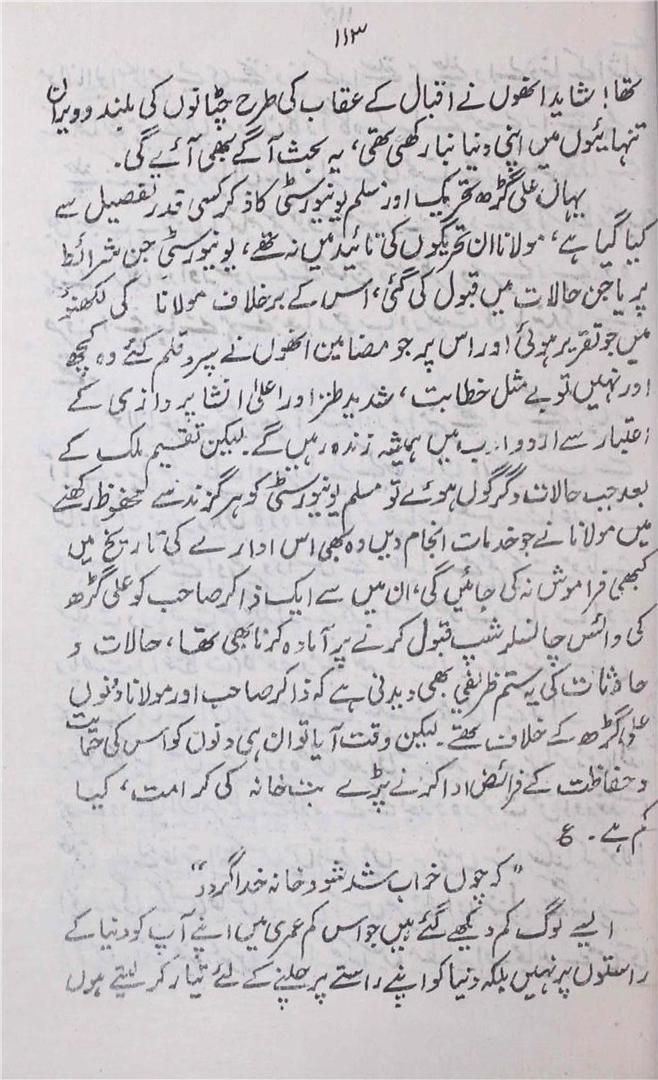 ۱۱۳
تھا! شاید انھوں نے اقبال کے عقاب کی طرح چٹانوں کی بلند و ویران
تنہائیوں میں اپنی دنیا بنا رکھی تھی، یہ بحث آگے بھی آئے گی۔
یہاں علی گڑھ تحریک اور مسلم یونیورسٹی کا ذکر کسی قدر تفصیل سے
کیا گیا ہے، مولانا ان تحریکوں کی تائید میں نہ تھے، یونیورسٹی جن شرائط
پر یا جن حالات میں قبول کی گئی، اس کے برخلاف مولانا کی لکھنؤ
میں جو تقریر ہوئی اور اس پر جو مضامین انھوں نے سپرد قلم کئے وہ کچھ
اور نہیں تو بے مثل خطابت، شدید طنز اور اعلیٰ انشا پردازی کے
اعتبار سے اردو ادب میں ہمیشہ زندہ رہیں گے۔ لیکن تقسیم ملک کے
بعد جب حالات دگرگوں ہوئے تو مسلم یونیورسٹی کو ہر گزند سے محفوظ رکھنے
میں مولانا نے جو خدمات انجام دیں وہ بھی اس ادارے کی تاریخ میں
کبھی فراموش نہ کی جائیں گی، ان میں سے ایک ذاکر صاحب کو علی گڑھ
کی وائس چانسلر شپ قبول کرنے پر آمادہ کرنا بھی تھا، حالات و
حادثات کی یہ ستم ظریفی بھی دیدنی ہے کہ ذاکر صاحب اور مولانا دونوں
علی گڑھ کے خلاف تھے۔ لیکن وقت آیا تو ان ہی دونوں کو اس کی حمایت
و حفاظت کے فرائض ادا کرنے پڑے بت خانہ کی کرامت، کیا
کم ہے۔ ع
"کہ چوں خراب شد شود خانہ خدا گردد"
ایسے لوگ کم دیکھے گئے ہیں جو اس کم عمری میں اپنے آپ کو دنیا کے
راستوں پر نہیں بلکہ دنیا کو اپنے راستے پر چلنے کے لئے تیار کر لیتے ہوں